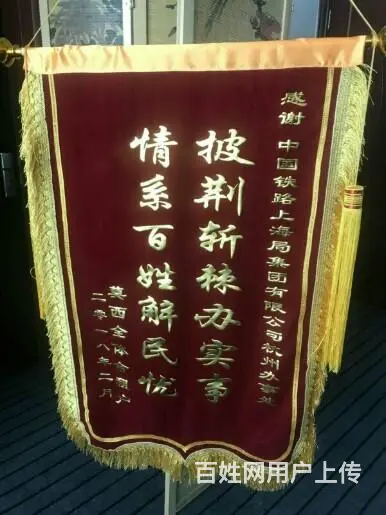 感谢 中国铁路上海局集团有限公司杭州办事处
披荆斩棘办实事
情系百姓解民忧
莫西全体合同户
二零一八年二月
百姓网用户上传